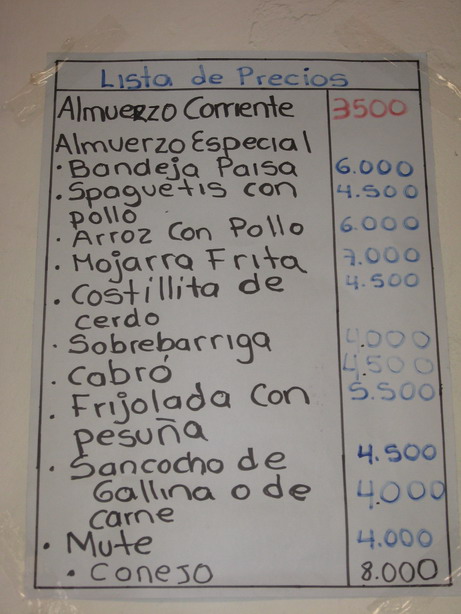 Lista de Precios
Almuerzo Corriente 3500
Almuerzo Especial
· Bandeja Paisa 6.000
· Spaguetis con 4.500
pollo
· Arroz Con Pollo 6.000
· Mojarra Frita 7.000
· Costillita de 4.500
cerdo
· Sobrebarriga 4.000
· Cabró 4.500
· Frijolada Con 5.500
pesuña
· Sancocho de 4.500
Gallina o de 4.000
carne
· Mute 4.000
· Conejo 8.000